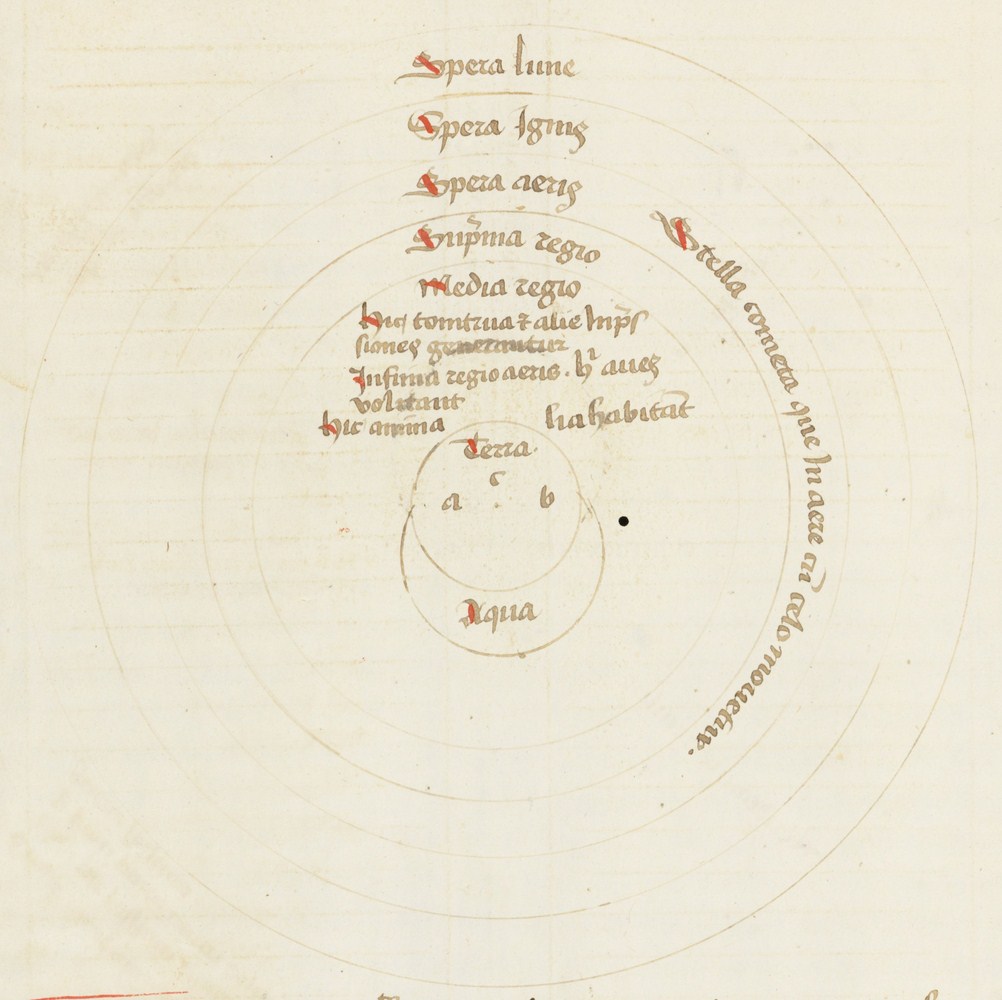 Spera lune
Spera Ignis
Spera aeris
Sup̄ma regio
Media regio
hic tomtrua ⁊ alie Imp̄s
siones generantur
Infima regio aeris. hͥ aues
volitant
hic anima lia habitāt
Terra.
c
a b
Aqua
Stella cometa que In aere cū celo mouetur.